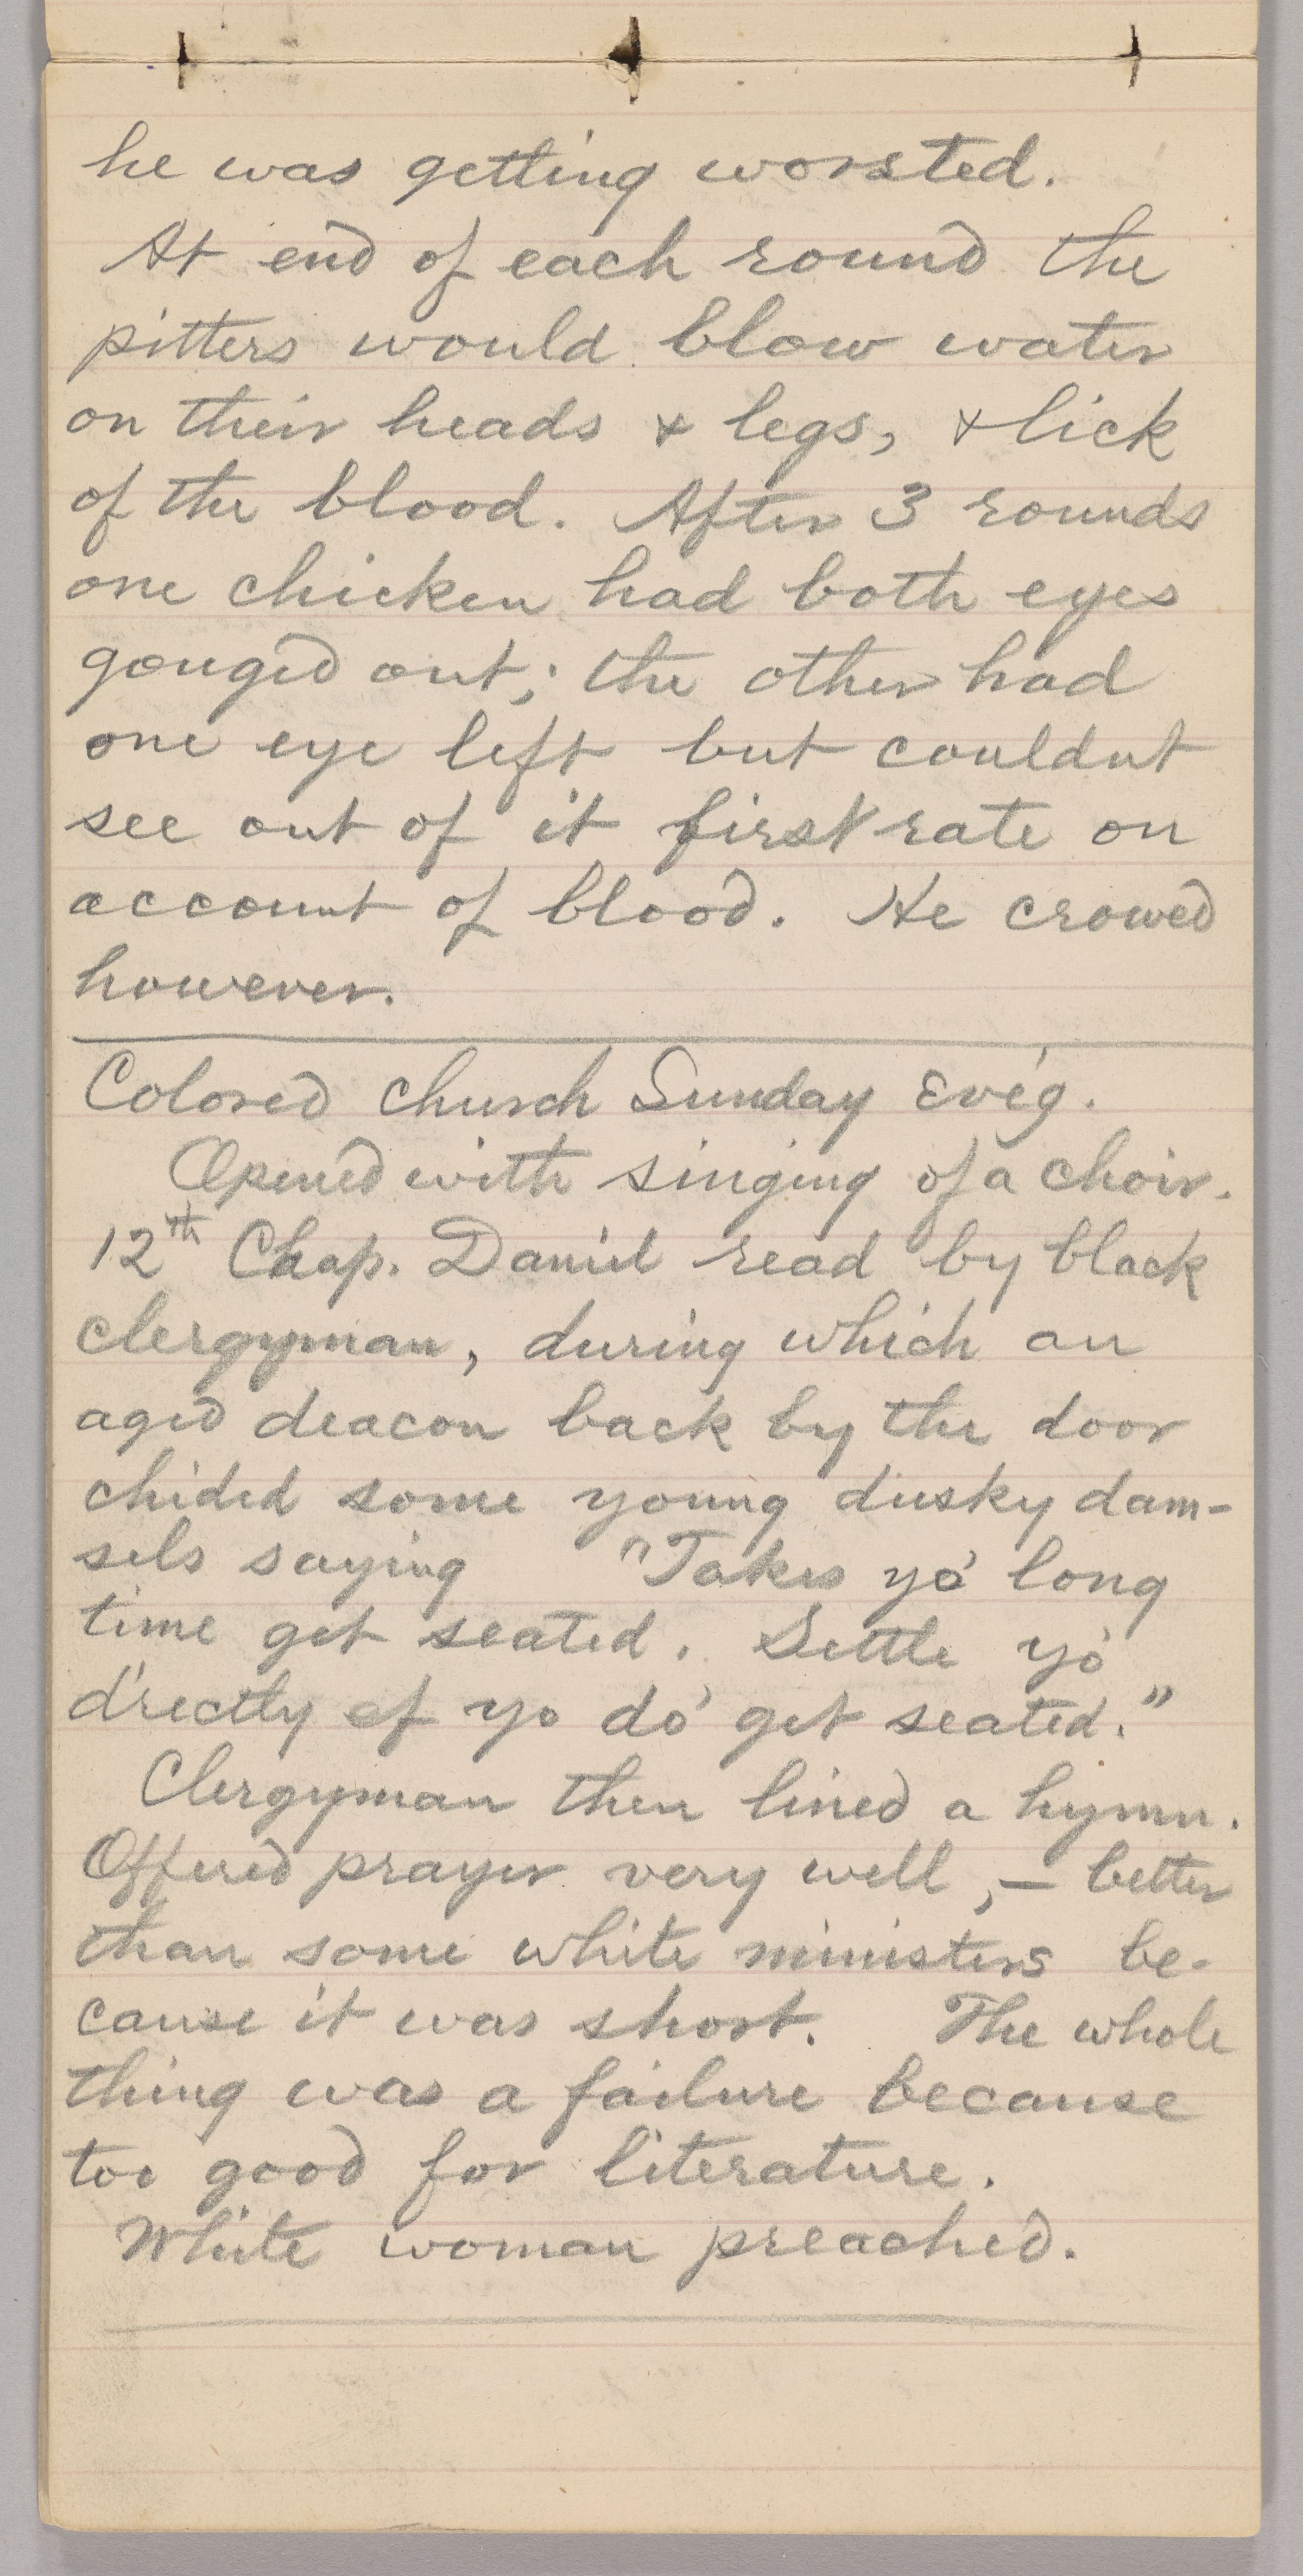 he was getting worsted.
At end of each round the
pitters would blow water
on their heads & legs, & lick
of the blood. After 3 rounds
one chicken had both eyes
gouged out; the other had
one eye left but couldnt
see out of it first rate on
account of blood. He crowed
however.
Colored church Sunday Ev'e'g.
Opened with singing of a choir.
12th Chap. Daniel read by black
clergyman, during which an
aged deacon back by the door
chided some young dusky dam-
sels saying "Takes yo' long
time get seated. Settle yo'
d'rectly ef yo do' get seated."
Clergyman then lined a hymn.
Offered prayer very well, – better
than some white ministers be-
cause it was short. The whole
thing was a failure because
too good for literature.
White woman preached.